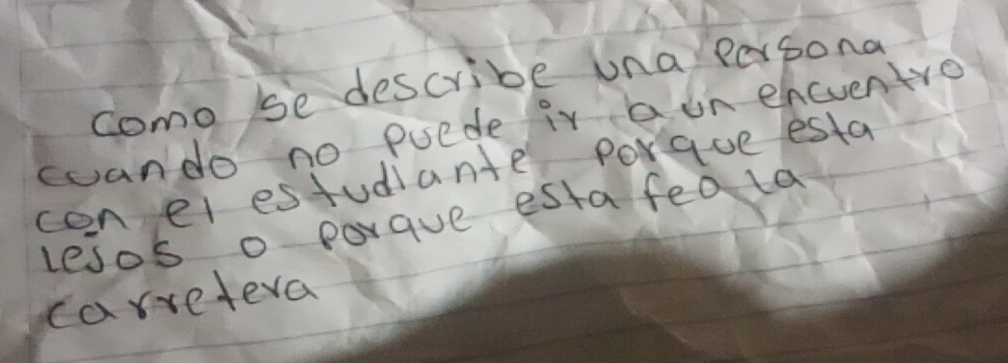 como se describe una persona
cuando no puede ir a un encuentro
con el estudiante porque esta
lejos o porque esta feo la
carretera